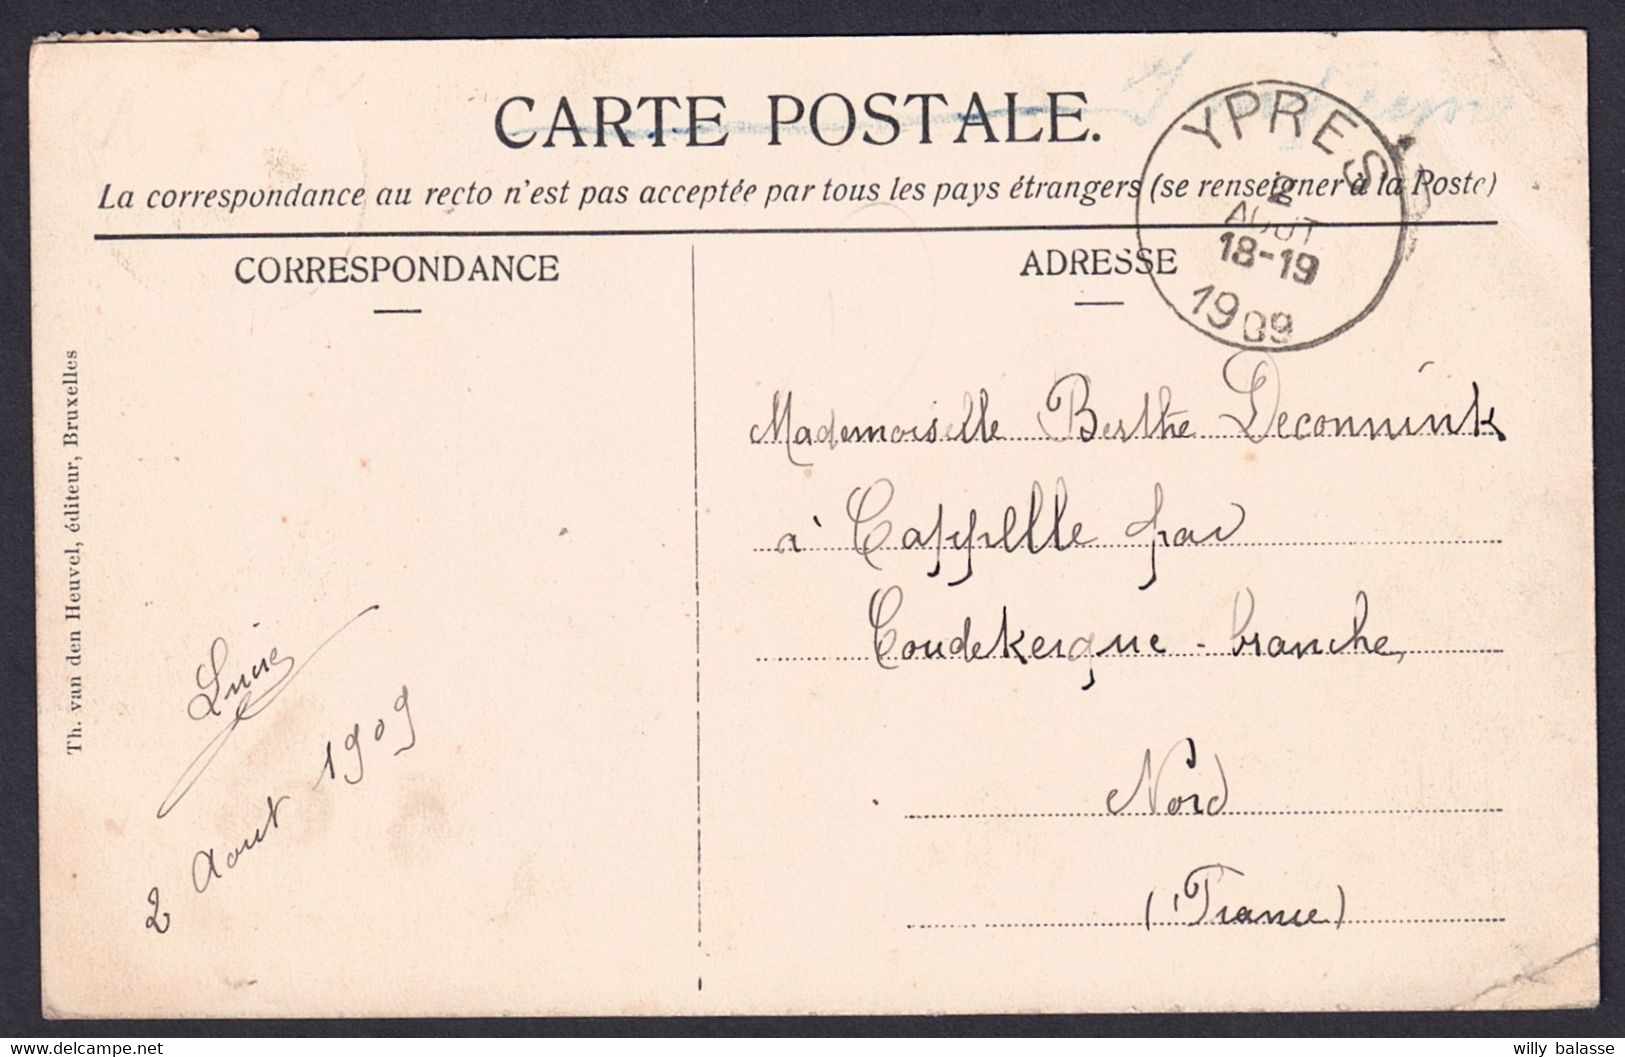 CARTE POSTALE.
La correspondance au recto n'est pas acceptée par tous les pays étrangers (se renseigner à la Poste)
YPRES
2
AOUT
18-19
1909
CORRESPONDANCE
ADRESSE
Th. van den Heuvel, éditeur, Bruxelles
Mademoiselle Berthe Deconnink
à Cappelle par
Coudekerque-branche,
Nord
(France)
2 Aout 1909
willy balasse